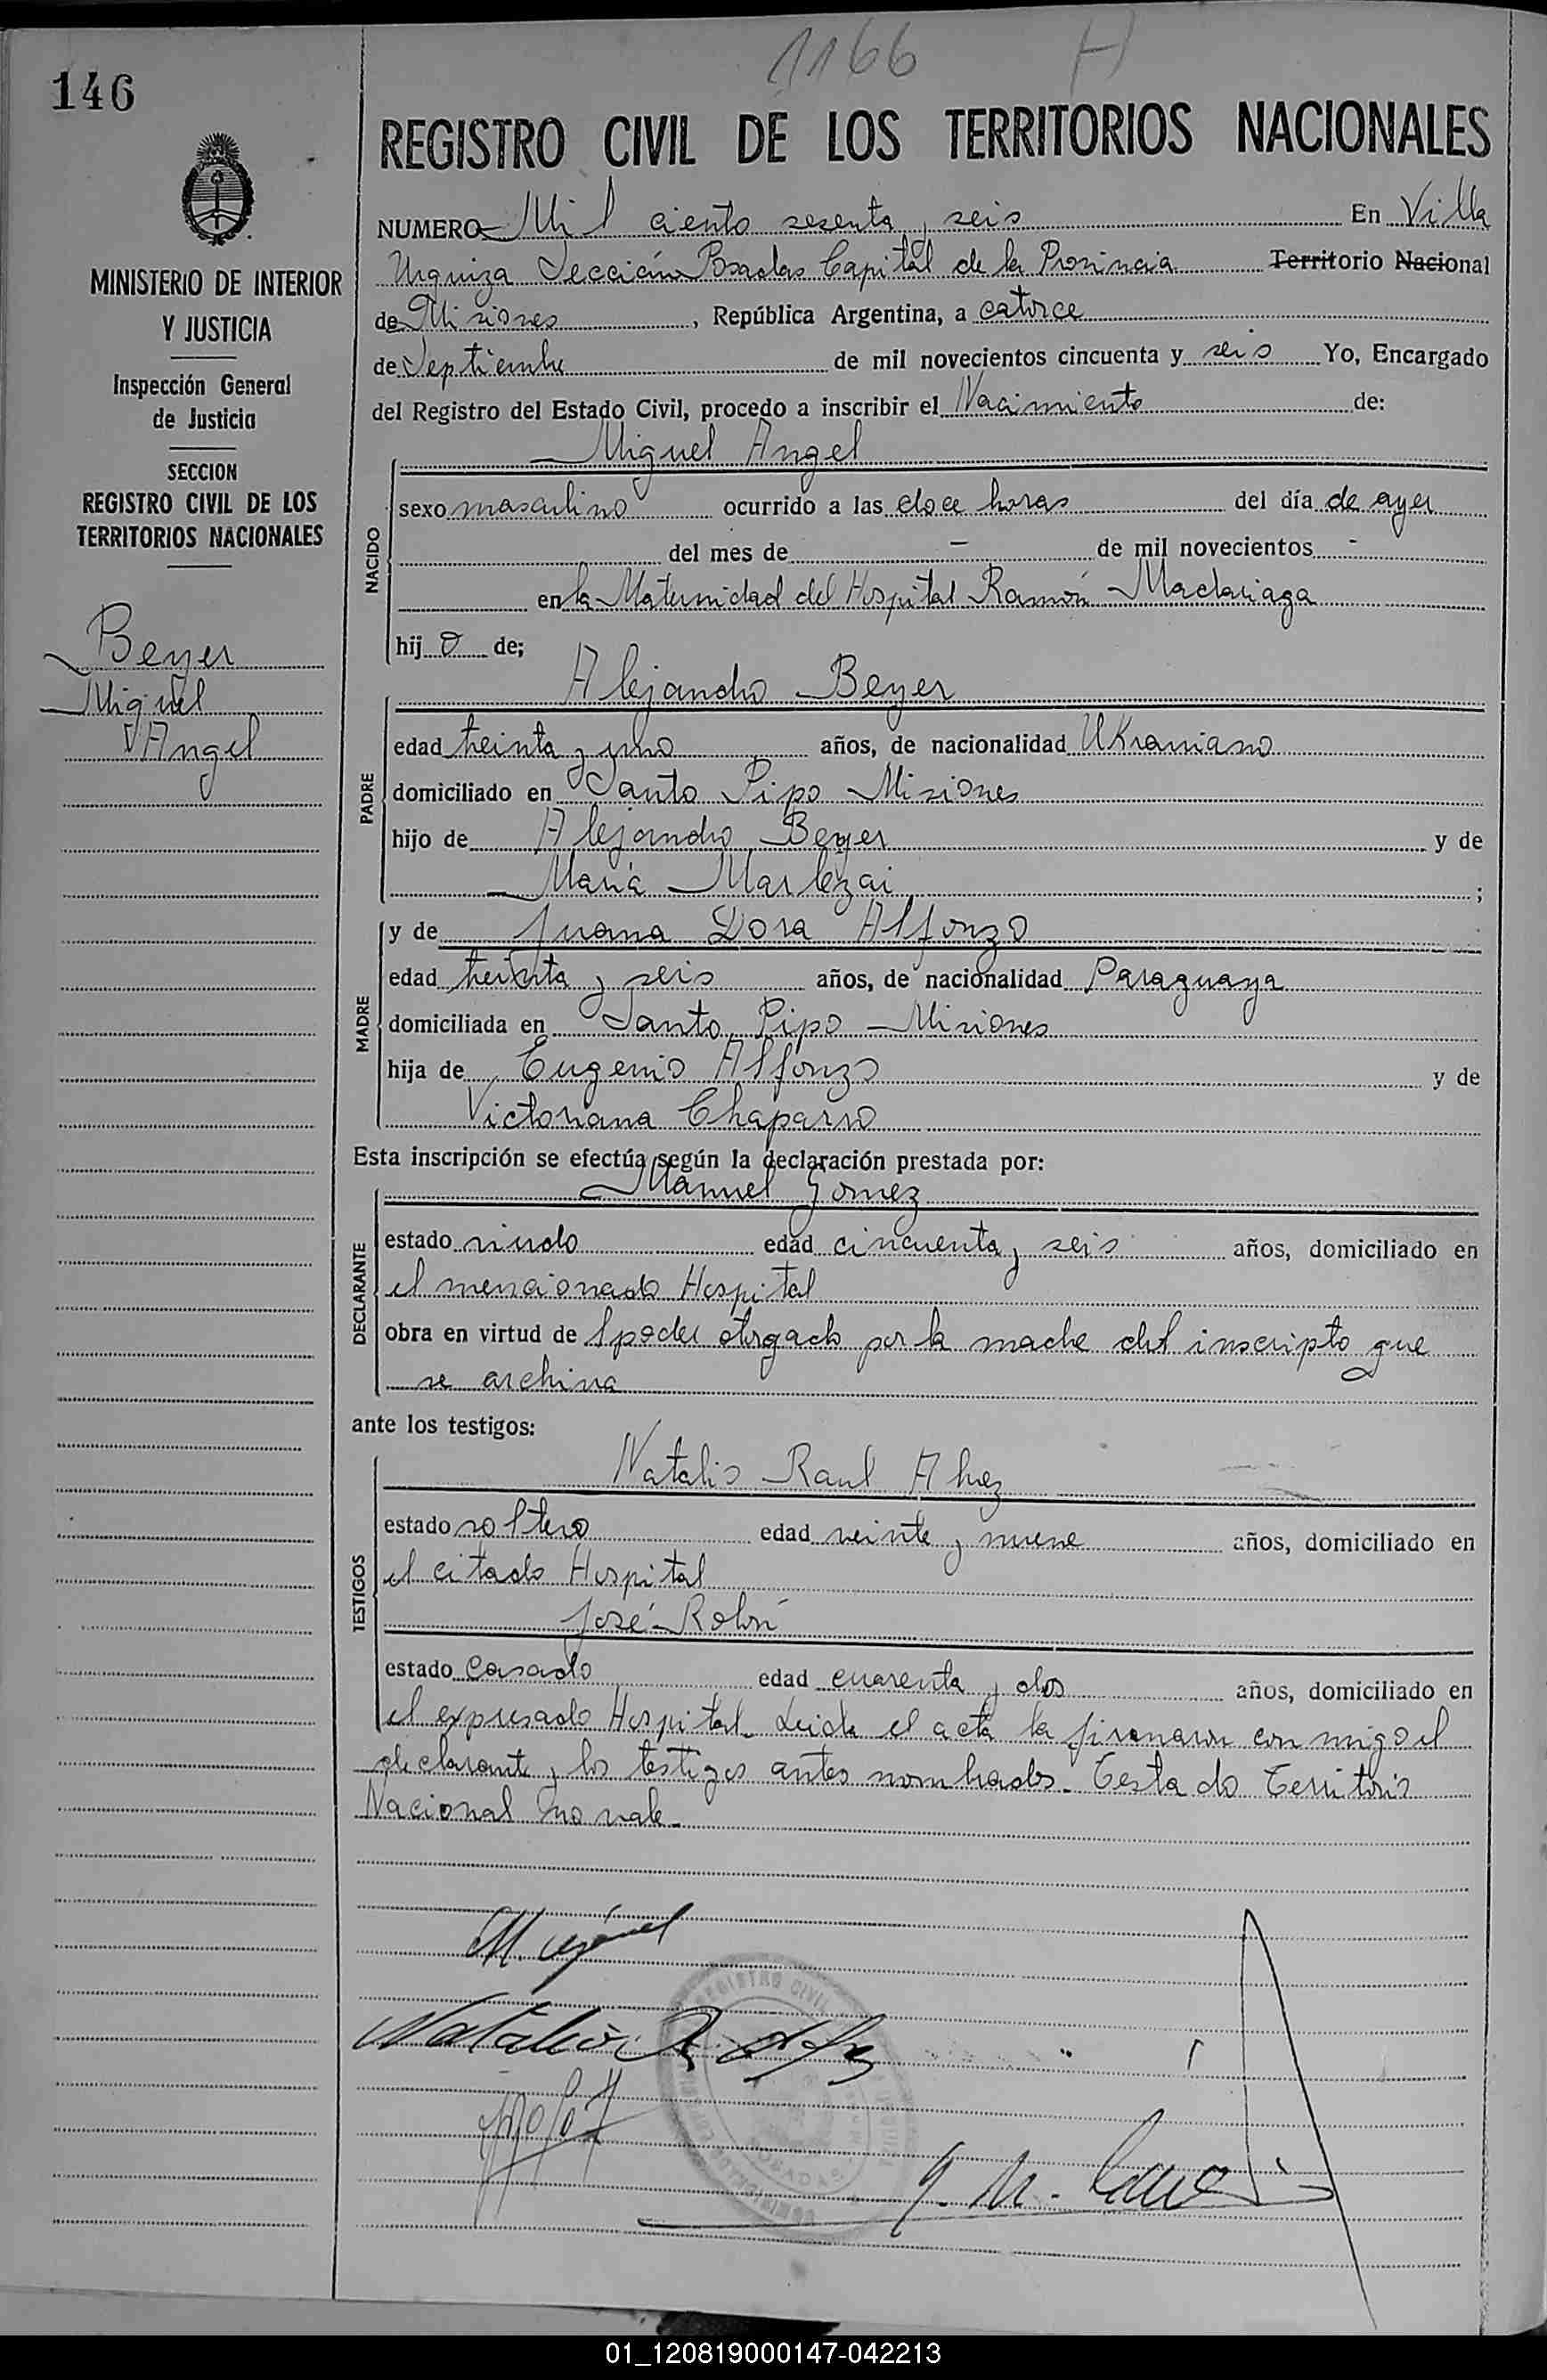 1166 H
146
REGISTRO CIVIL DE LOS TERRITORIOS NACIONALES
MINISTERIO DE INTERIOR
Y JUSTICIA
Inspección General
de Justicia
SECCION
REGISTRO CIVIL DE LOS
TERRITORIOS NACIONALES
Beyer
Miguel
Angel
NUMERO Mil ciento sesenta y seis En Villa
Urquiza Sección Posadas Capital de la Provincia Territorio Nacional
de Misiones, República Argentina, a catorce
de Septiembre de mil novecientos cincuenta y seis Yo, Encargado
del Registro del Estado Civil, procedo a inscribir el Nacimiento de:
NACIDO
Miguel Angel
sexo masculino ocurrido a las doce horas del día de ayer
del mes de - de mil novecientos -
en la Maternidad del Hospital Ramón Madariaga
hij o de;
PADRE
Alejandro Beyer
edad treinta y uno años, de nacionalidad Ukraniano
domiciliado en Santo Pipo Misiones
hijo de Alejandro Beyer y de
María ;
MADRE
y de Juana Dora Alfonzo
edad treinta y seis años, de nacionalidad Paraguaya
domiciliada en Santo Pipo Misiones
hija de Eugenio Alfonzo y de
Victoriana Chaparro
Esta inscripción se efectúa según la declaración prestada por:
DECLARANTE
Manuel Gomez
estado viudo edad cincuenta y seis años, domiciliado en
el mencionado Hospital
obra en virtud de poder otorgado por la madre del inscripto que
se archiva
ante los testigos:
TESTIGOS
Natalio Raul
estado soltero edad veinte y nueve años, domiciliado en
el citado Hospital
José
estado casado edad cuarenta y dos años, domiciliado en
el expresado Hospital. Leida el acta la firmaron con migo el
declarante y los testigos antes nombrados. Testado Territorio
Nacional no vale.
Natalio R.
REGISTRO CIVIL
POSADAS
01_120819000147-042213